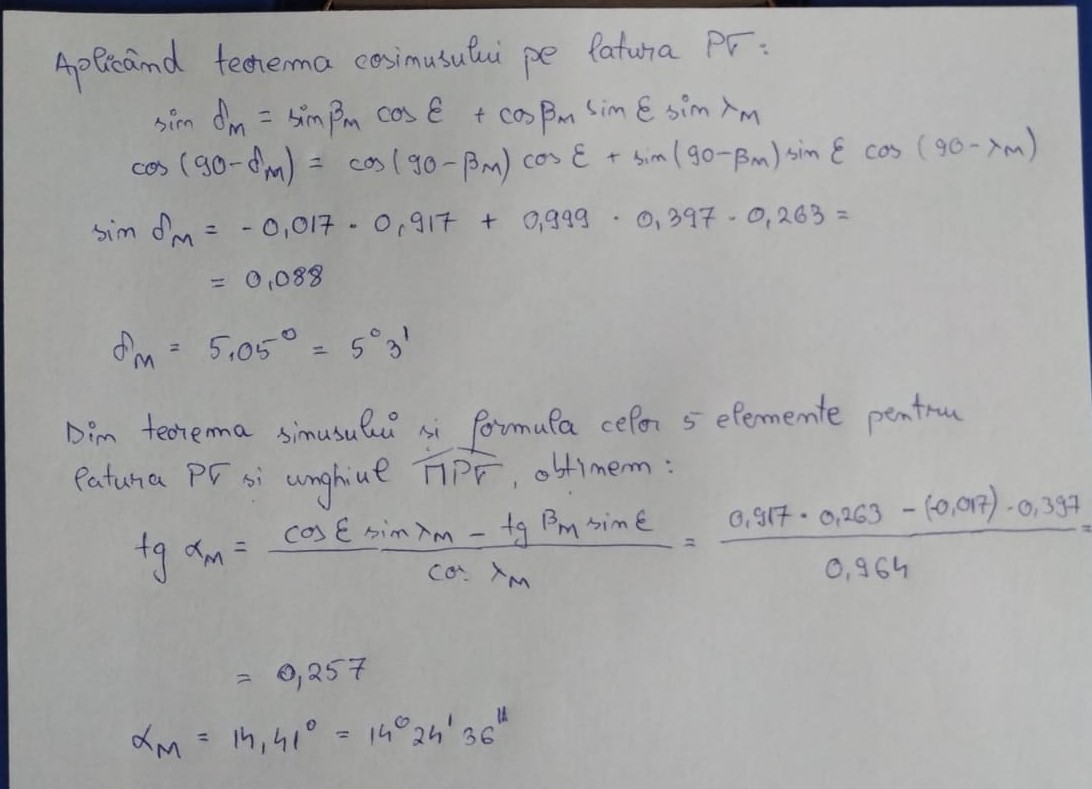 Aplicând teorema cosinusului pe latura PΓ:
sin δM = sin βM cos ε + cos βM sin ε sin λM
cos (90-δM) = cos(90-βM) cos ε + sin(90-βM) sin ε cos (90-λM)
sin δM = -0,017 · 0,917 + 0,999 · 0,397 · 0,263 =
= 0,088
δM = 5,05° = 5°3'
Din teorema sinusului si formula celor 5 elemente pentru
latura PΓ si unghiul ΠPΓ, obtinem:
tg αM = (cos ε sin λM - tg βM sin ε) / cos λM = (0,917 · 0,263 - (-0,017) · 0,397) / 0,964 =
= 0,257
αM = 14,41° = 14°24'36"